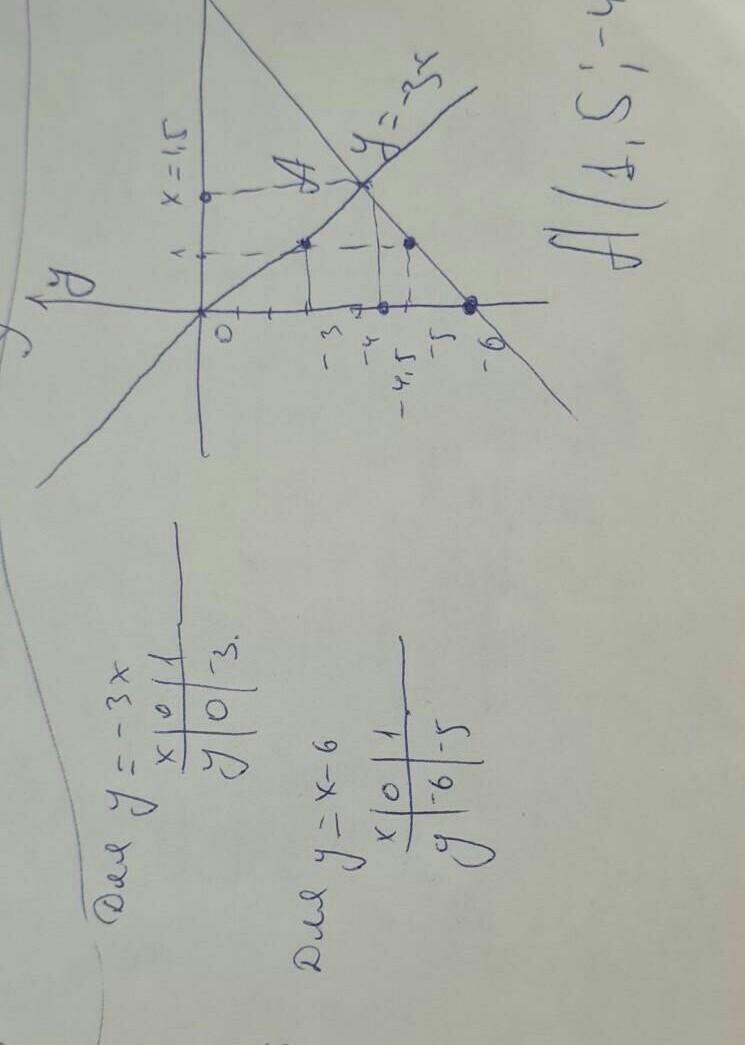 Для y = -3x
x | 0 | 1
y | 0 | -3
Для y = x-6
x | 0 | 1
y | -6 | -5
y
x = 1,5
1
0
A
y = -3x
-3
-4
-4,5
-5
-6
A(1,5; -4